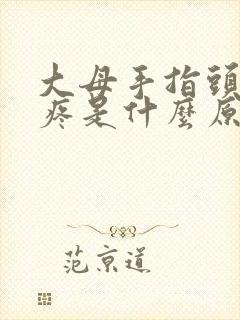 大母手指頭
疼是什麼原
范京道